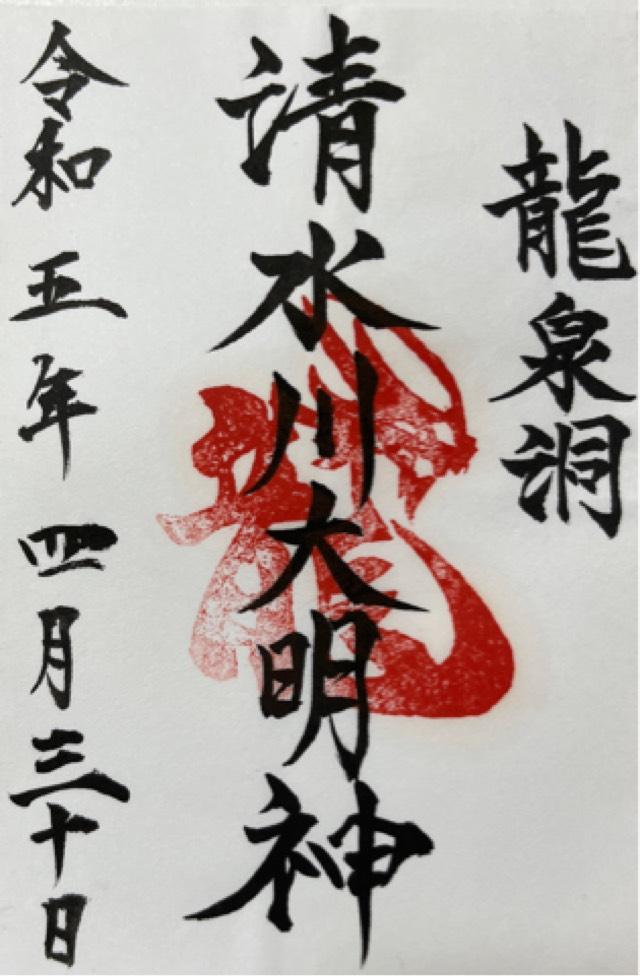 龍泉洞
清水川大明神
令和五年四月三十日
龍